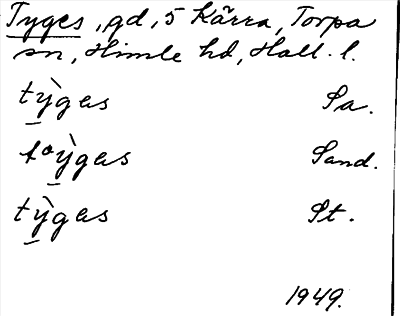 Tyges, gd, 5 Kärra, Torpa
sn, Himle hd, Hall. l.
tỳgas Sa.
tᵒỳgas Sand.
tỳgas St.
1949.